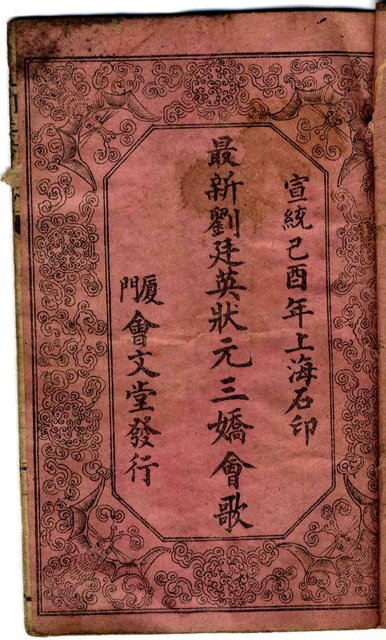 宣統己酉年上海石印
最新劉廷英狀元三嬌會歌
廈門會文堂發行